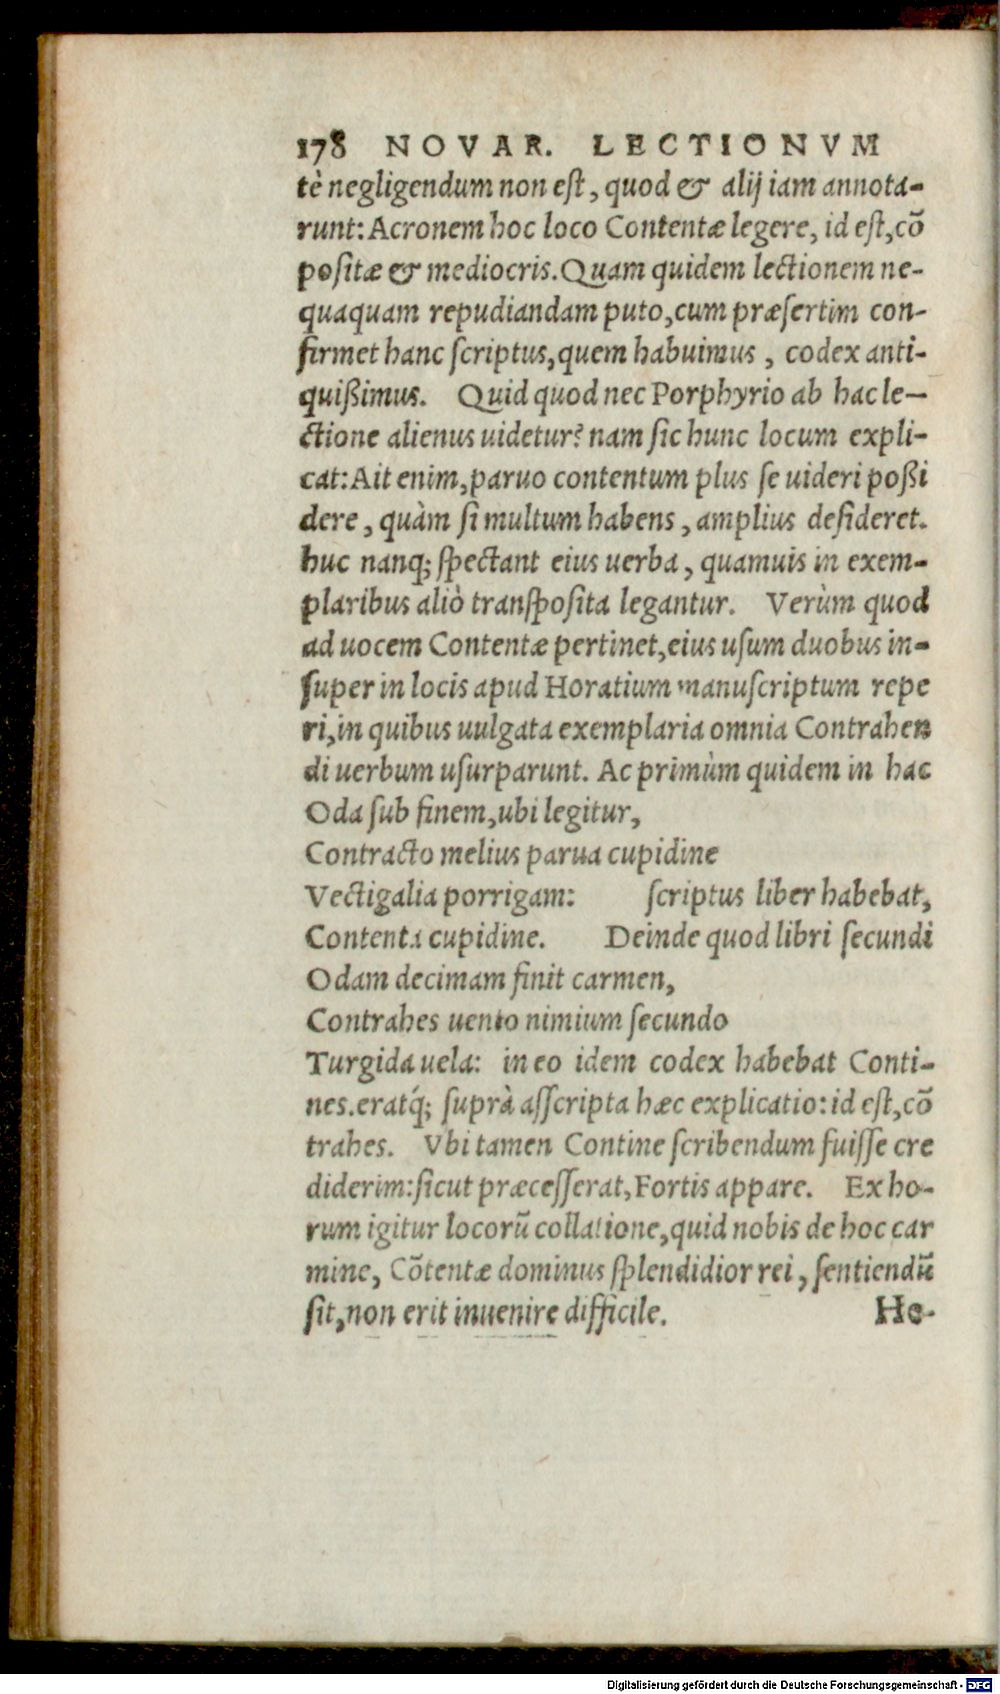 178 NOVAR. LECTIONVM
tè negligendum non est, quod & alij iam annota-
runt: Acronem hoc loco Contentæ legere, id est, cõ
positæ & mediocris. Quam quidem lectionem ne-
quaquam repudiandam puto, cum præsertim con-
firmet hanc scriptus, quem habuimus, codex anti-
quißimus. Quid quod nec Porphyrio ab hac le-
ctione alienus uidetur? nam sic hunc locum expli-
cat: Ait enim, paruo contentum plus se uideri poßi
dere, quàm si multum habens, amplius desideret.
huc nanq; spectant eius uerba, quamuis in exem-
plaribus aliò transposita legantur. Verùm quod
ad uocem Contentæ pertinet, eius usum duobus in-
super in locis apud Horatium manuscriptum repe
ri, in quibus uulgata exemplaria omnia Contrahen
di uerbum usurparunt. Ac primùm quidem in hac
Oda sub finem, ubi legitur,
Contracto melius parua cupidine
Vectigalia porrigam: scriptus liber habebat,
Contenta cupidine. Deinde quod libri secundi
Odam decimam finit carmen,
Contrahes uento nimium secundo
Turgida uela: in eo idem codex habebat Conti-
nes. eratq́; suprà asscripta hæc explicatio: id est, cõ
trahes. Vbi tamen Contine scribendum fuisse cre
diderim: sicut præcesserat, Fortis appare. Ex ho-
rum igitur locorũ collatione, quid nobis de hoc car
mine, Cõtentæ dominus splendidior rei, sentiendũ
sit, non erit inuenire difficile. He-
Digitalisierung gefördert durch die Deutsche Forschungsgemeinschaft - DFG